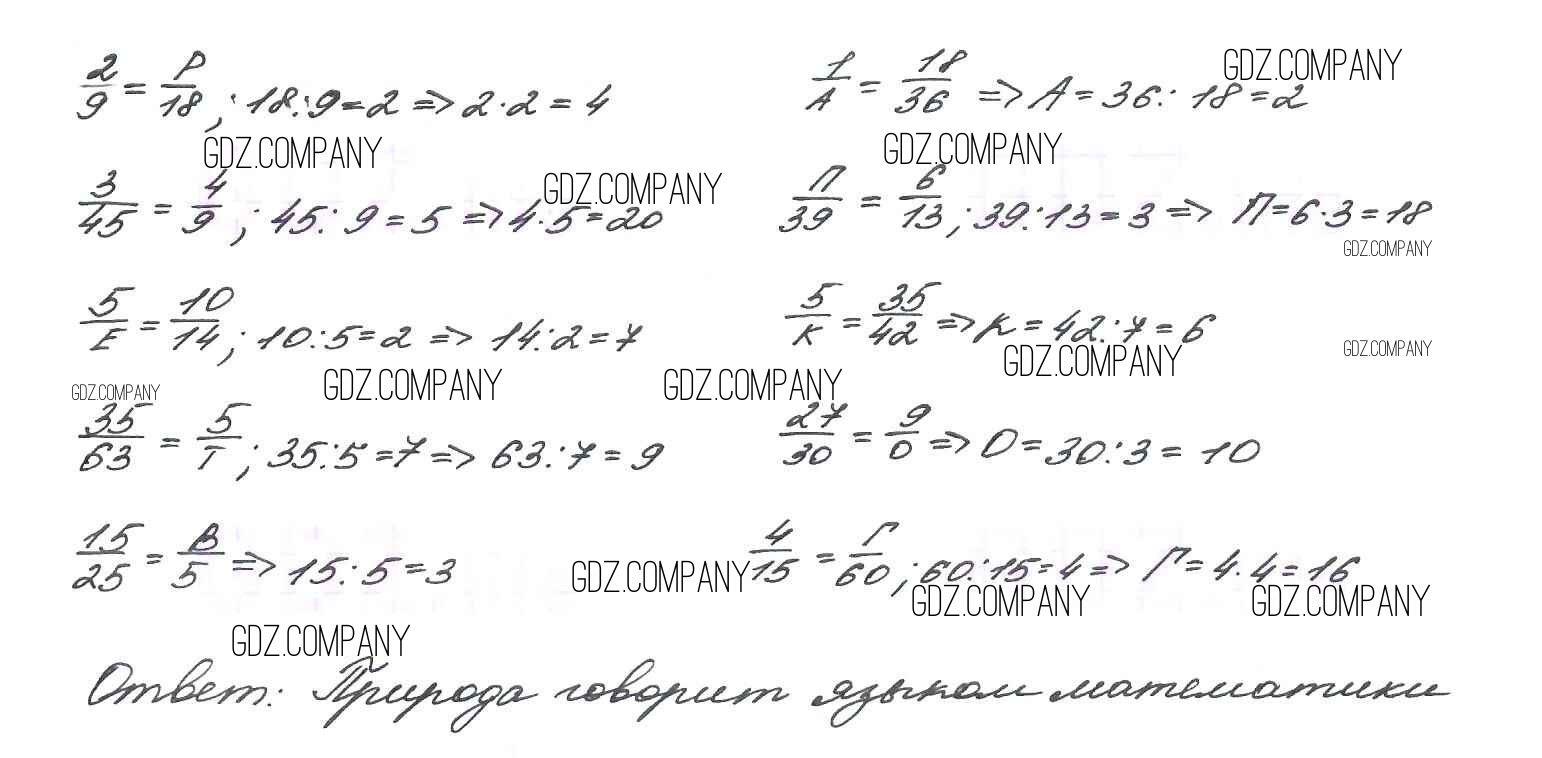 2/9 = Р/18 ; 18:9=2 => 2·2=4 1/А = 18/36 => А=36:18=2 GDZ.COMPANY
GDZ.COMPANY GDZ.COMPANY
3/45 = 4/9 ; 45:9=5 => 4·5=20 GDZ.COMPANY П/39 = 6/13 ; 39:13=3 => П=6·3=18
GDZ.COMPANY
5/Е = 10/14 ; 10:5=2 => 14:2=7 5/К = 35/42 => К=42:7=6
GDZ.COMPANY GDZ.COMPANY
GDZ.COMPANY GDZ.COMPANY GDZ.COMPANY
35/63 = 5/Т ; 35:5=7 => 63:7=9 27/30 = 9/О => О=30:3=10
15/25 = В/5 => 15:5=3 GDZ.COMPANY 4/15 = Г/60 ; 60:15=4 => Г=4·4=16
GDZ.COMPANY GDZ.COMPANY
GDZ.COMPANY
Ответ: Природа говорит языком математики